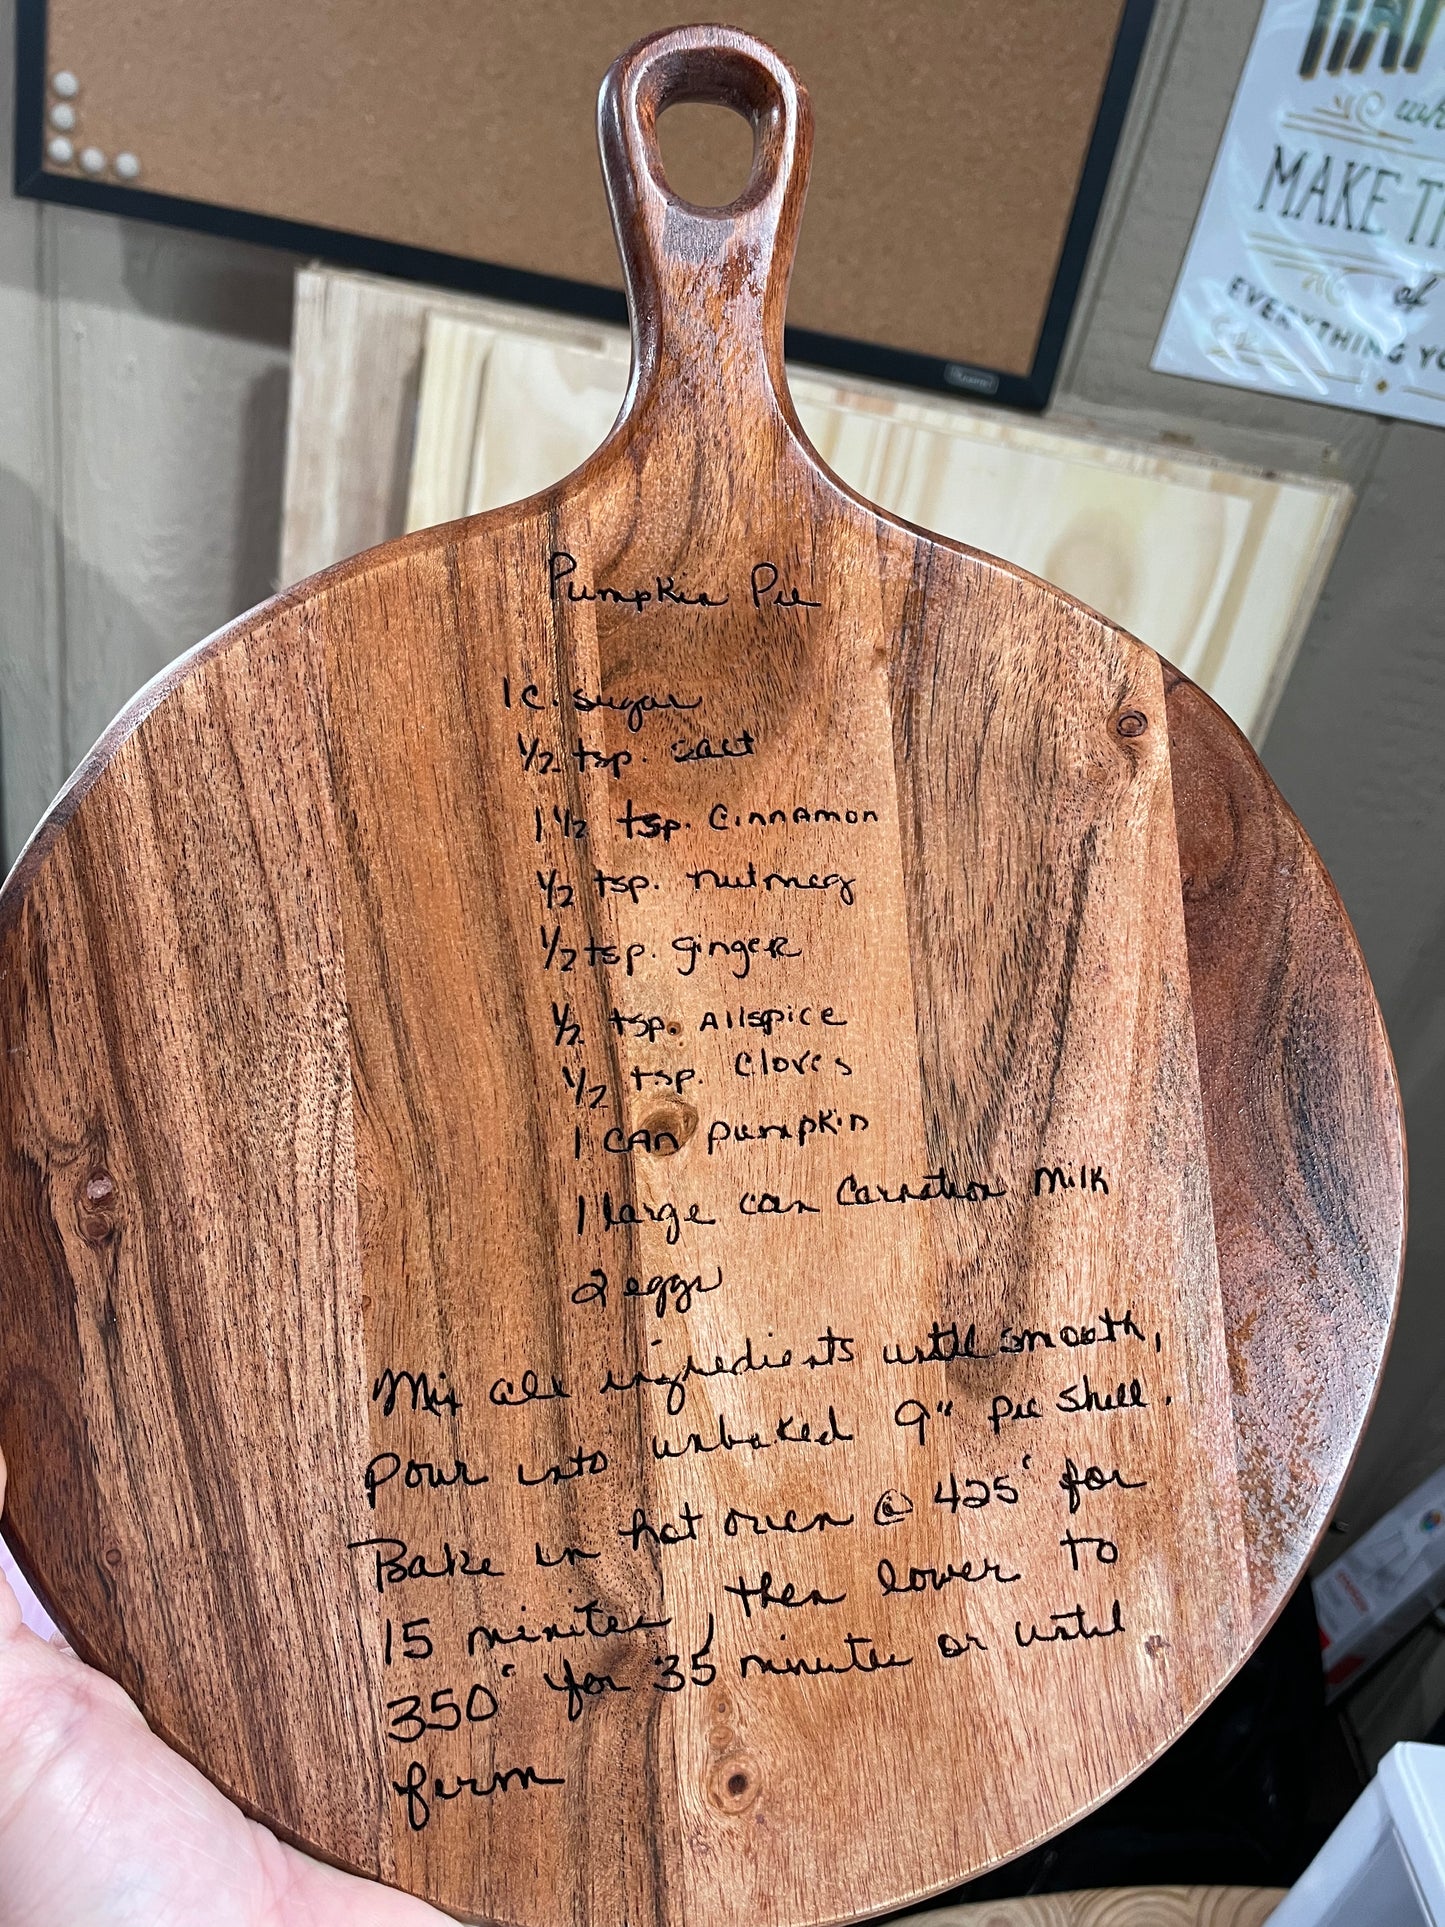 MAKE
of
EVERYTHING
Pumpkin Pie
1 c. sugar
1/2 tsp. salt
1 1/2 tsp. Cinnamon
1/2 tsp. nutmeg
1/2 tsp. ginger
1/2 tsp. Allspice
1/2 tsp. Cloves
1 can pumpkin
1 large can Carnation Milk
2 eggs
Mix all ingredients until smooth,
pour into unbaked 9" pie shell.
Bake in hot oven @ 425° for
15 minutes, then lower to
350° for 35 minutes or until
firm